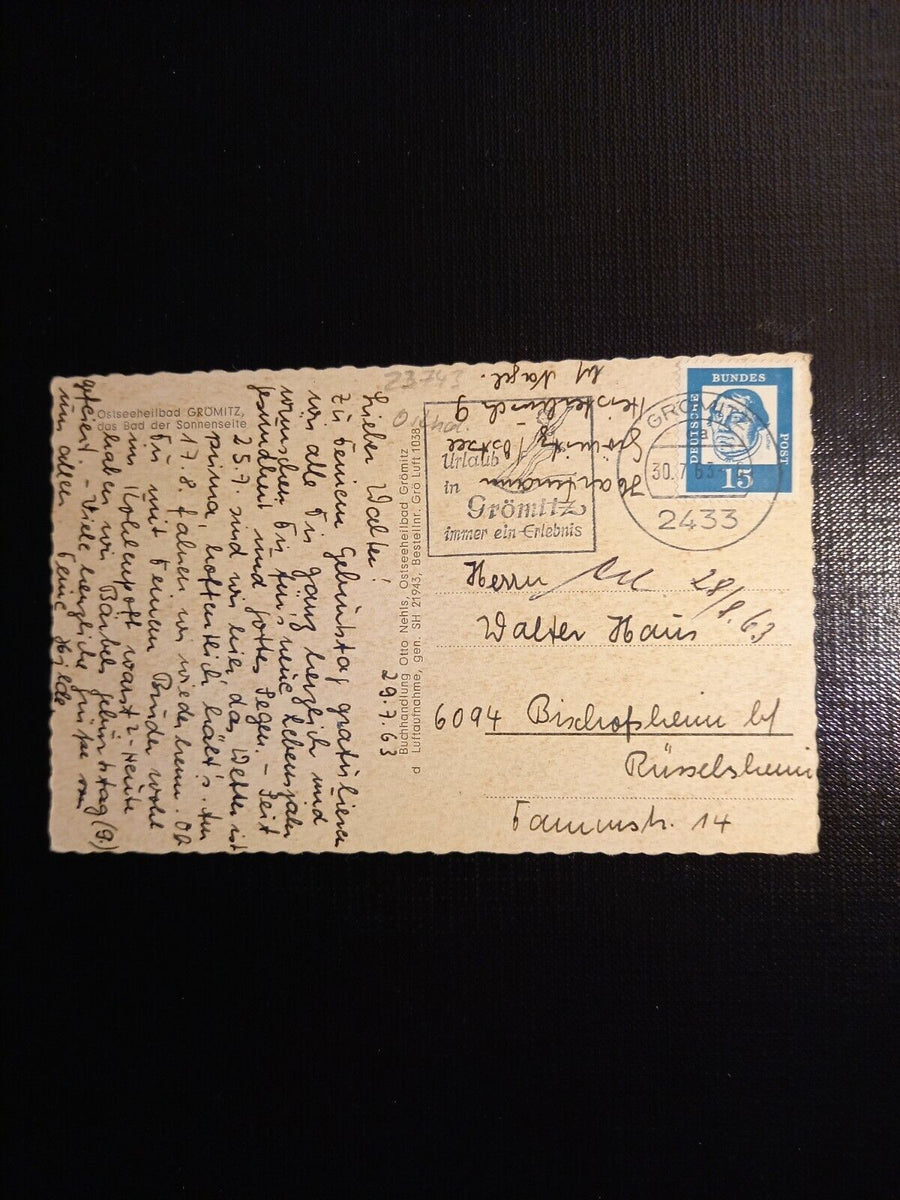 Ostseeheilbad GRÖMITZ,
das Bad der Sonnenseite
29.7.63
Lieber Walter!
Zu Deinem Geburtstag gratulieren
wir alle Dir ganz herzlich und
wünschen Dir fürs neue Lebensjahr
Gesundheit und Gottes Segen. – Seit
25.7. sind wir hier, das Wetter ist
prima, hoffentlich hält's. Am
17.8. fahren wir wieder heim. Ob
Du mit Deinem Bruder wohl
im warst? – Heute
haben wir Bärbels Geburtstag (9.)
gefeiert. – Viele herzliche Grüße von
uns allen Deine
Buchhandlung Otto Nehls, Ostseeheilbad Grömitz
Luftaufnahme, gen. SH 21943, Bestellnr. Grö Luft 1038
23743
Hartmann
Grömitz/Ostsee
9
b/ Nagel.
Urlaub
in
Grömitz
immer ein Erlebnis
GRÖMITZ
a
30.7.63
2433
DEUTSCHE
BUNDES
POST
15
Herrn
28/8.63
Walter Haus
6094 Bischofsheim b/
Rüsselsheim
Taunusstr. 14